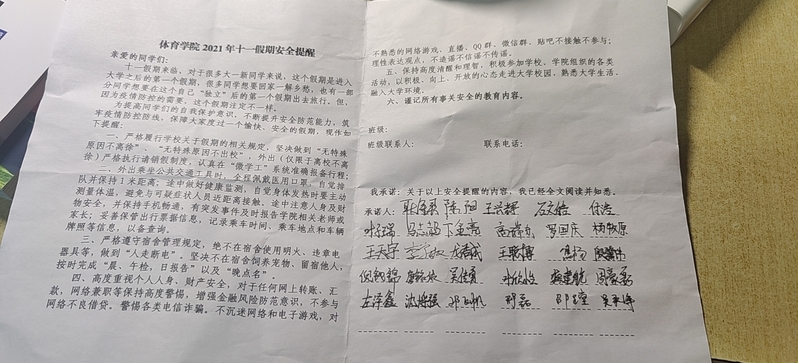 体育学院 2021 年十一假期安全提醒
亲爱的同学们:
十一假期来临,对于很多大一新同学来说,这个假期是进入
大学之后的第一个假期,很多同学想要回家一解乡愁,也有一部
分同学想要在这个自己“独立”后的第一个假期出去旅行。但,
因为疫情防控的需要,这个假期注定不一样。
为提高同学们的自我保护意识,不断提升安全防范能力,筑
牢疫情防控防线,保障大家度过一个愉快、安全的假期,现作如
下提醒:
一、严格履行学校关于假期的相关规定,坚决做到“无特殊
原因不离徐”、“无特殊原因不出校”,外出(仅限于离校不离
徐)严格执行请销假制度,认真在“微学工”系统准确报备行程;
二、外出乘坐公共交通工具时,全程佩戴医用口罩,自觉排
队并保持1米距离;途中做好健康监测,自觉身体发热时要主动
测量体温,避免与可疑症状人员近距离接触,途中注意人身及财
物安全,并保持手机畅通,有突发事件及时报告学院相关老师或
家长;妥善保管出行票据信息,记录乘车时间、乘车地点和车辆
牌照等信息,以备查询。
三、严格遵守宿舍管理规定,绝不在宿舍使用明火、违章电
器具等,做到“人走断电”。坚决不在宿舍饲养宠物、留宿他人,
按时完成“晨、午检,日报告”以及“晚点名”。
四、高度重视个人人身、财产安全,对于任何网上转账、汇
款,网络兼职等保持高度警惕,增强金融风险防范意识,不参与
网络不良借贷。警惕各类电信诈骗。不沉迷网络和电子游戏,对
不熟悉的网络游戏、直播、QQ 群、微信群、贴吧不接触不参与;
理性表达观点,不造谣不信谣不传谣。
五、保持高度清醒和理智,积极参加学校、学院组织的各类
活动,以积极、向上、开放的心态走进大学校园,熟悉大学生活、
融入大学环境。
六、谨记所有事关安全的教育内容。
班级:
班级联系人: 联系电话:
我承诺:关于以上安全提醒的内容,我已经全文阅读并知悉。
承诺人: 陈阳
罗国庆 杨牧原
王天宇
吴佳勇
沈将强 邓磊